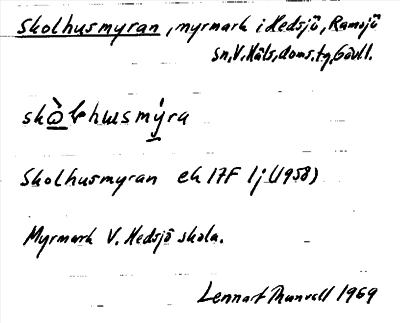 Skolhusmyran, myrmark i Hedsjö, Ramsjö
sn, V. Häls. doms. tg, Gävl.
Skolhusmyran ek 17F 1j (1958)
Myrmark V. Hedsjö skola.
Lennart 1969